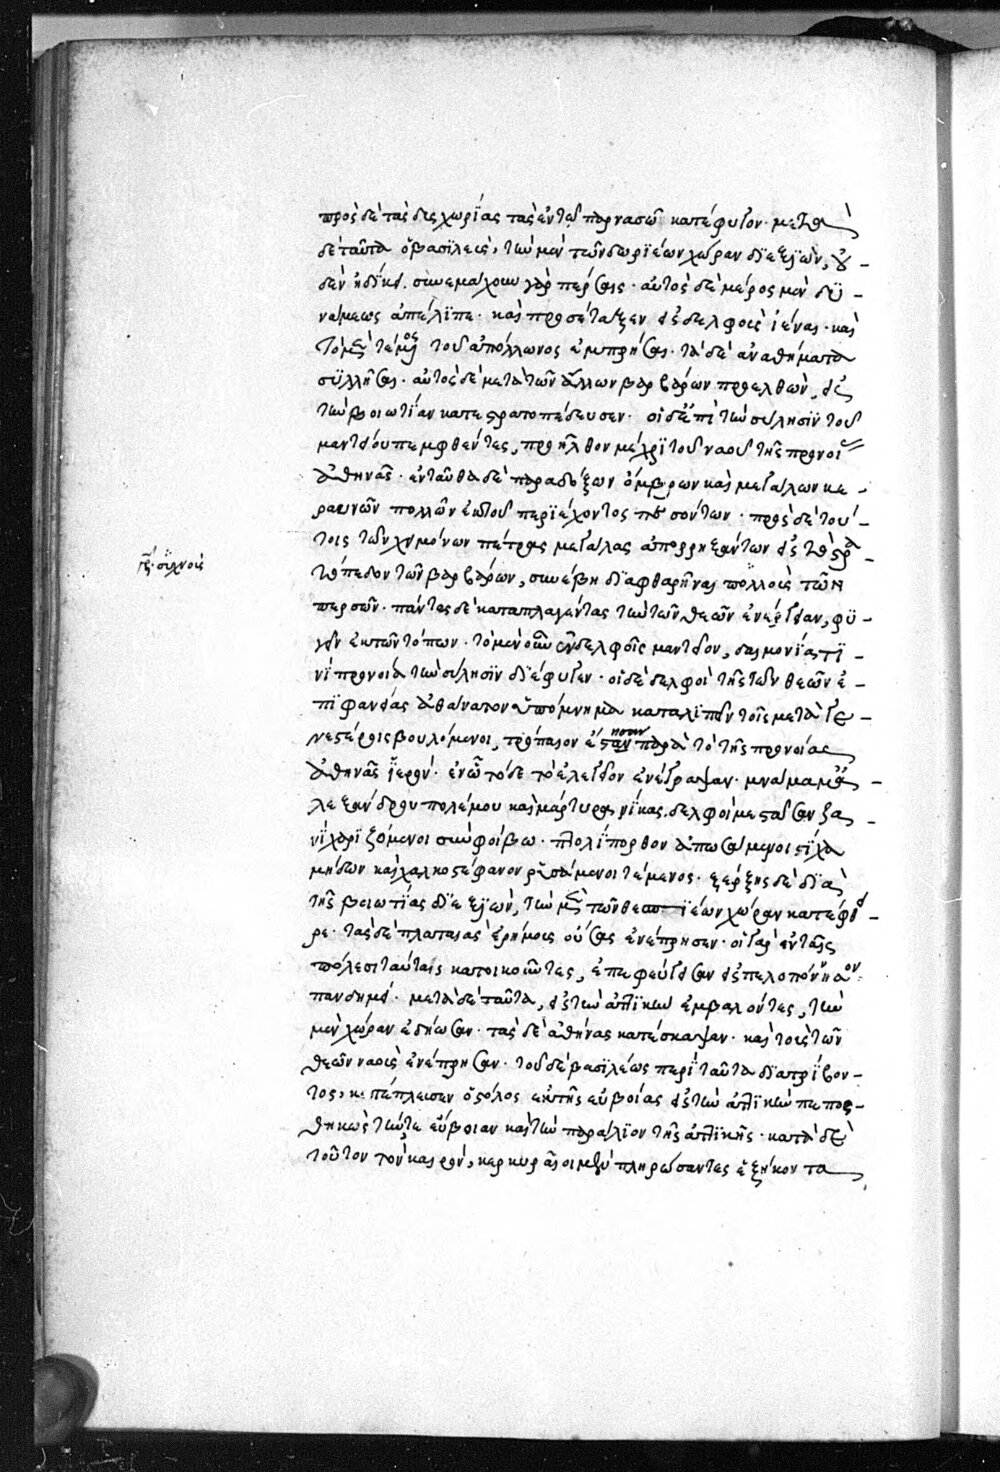 πρὸς δὲ τὰς δυσχωρίας τὰς ἐν τῷ παρνασῶ κατέφυγον· μετὰ
δὲ ταῦτα ὁ βασιλεὺς, τὴν μὲν τῶν δωριέων χώραν διεξιὼν, οὐ-
δὲν ἠδίκει. συνεμάχουν γὰρ πέρσαις· αὐτοῦ δὲ μέρος μὲν δυ-
νάμεως ἀπέλιπε· καὶ προσέταξεν εἰς δελφοὺς ἰέναι· καὶ
τὸ μὲν τέμενος τοῦ ἀπόλλωνος ἐμπρῆσαι· τὰ δὲ ἀναθήματα
συλλῆσαι· αὐτὸς δὲ μετὰ τῶν ἄλλων βαρβάρων προελθὼν, εἰς
τὴν βοιωτίαν κατεστρατοπέδευσεν· οἱ δὲ ἐπὶ τὴν σύλησιν τοῦ
μαντείου πεμφθέντες, προῆλθον μέχρι τοῦ ναοῦ τῆς προνοίας
ἀθηνᾶς· ἐνταῦθα δὲ παραδόξων ὄμβρων καὶ μεγάλων κε-
ραυνῶν πολλῶν ἐκ τοῦ περιέχοντος πεσόντων· πρὸς δὲ τού-
τοις τῶν χειμόνων πέτρας μεγάλας ἀπορρηξάντων εἰς τὸ στρα-
τόπεδον τῶν βαρβάρων, συνέβη διαφθαρῆναι πολλοὺς τῶν
γρ. συχνοὺς
περσῶν· πάντας δὲ καταπλαγέντας τὴν τῶν θεῶν ἐνέργειαν, φυ-
γεῖν ἐκ τῶν τόπων· τὸ μὲν οὖν ἐν δελφοῖς μαντεῖον, δαιμονία τι-
νὶ προνοία τὴν σύλησιν διέφυγεν· οἱ δὲ δελφοὶ τῆς τῶν θεῶν ἐ-
πιφανείας ἀθάνατον ὑπόμνημα καταλιπεῖν τοῖς μεταγε-
νεστέροις βουλόμενοι, τρόπαιον ἔστησαν παρὰ τὸ τῆς προνοίας
ἀθηνᾶς ἱερόν· ἐν ᾧ τόδε τὸ ἐλεγεῖον ἐνέγραψαν· μνᾶμά μ' ἀ-
λεξάνδρου πολέμου καὶ μάρτυρα νίκας. δελφοί με στᾶσαν ζα-
νὶ χαριζόμενοι σὺν φοίβω· πτολίπορθον ἀπωσάμενοι στίχα
μήδων καὶ χαλκοστέφανον ῥυσάμενοι τέμενος· ξέρξης δὲ διὰ
τῆς βοιωτίας διεξιὼν, τὴν μὲν τῶν θεσπιέων χώραν κατέφθει-
ρε· τὰς δὲ πλαταιὰς ἐρήμους οὔσας ἐνέπρησεν· οἱ γὰρ ἐν ταῖς
πόλεσι ταύταις κατοικοῦντες, ἐπεφεύγεισαν εἰς πελοπόννησον
πανδημεί· μετὰ δὲ ταῦτα, εἰς τὴν ἀττικὴν ἐμβαλόντες, τὴν
μὲν χώραν ἐδήωσαν· τὰς δὲ ἀθήνας κατέσκαψαν· καὶ τοὺς τῶν
θεῶν ναοὺς ἐνέπρησαν· τοῦ δὲ βασιλέως περὶ ταῦτα διατρίβον-
τος, κατέπλευσεν ὁ στόλος ἐκ τῆς εὐβοίας εἰς τὴν ἀττικὴν πεπορ-
θηκὼς τήν τε εὔβοιαν καὶ τὴν παράλιον τῆς ἀττικῆς· κατὰ δὲ
τοῦτον τὸν καιρὸν, κερκυραῖοι μὲν πληρώσαντες ἑξήκοντα